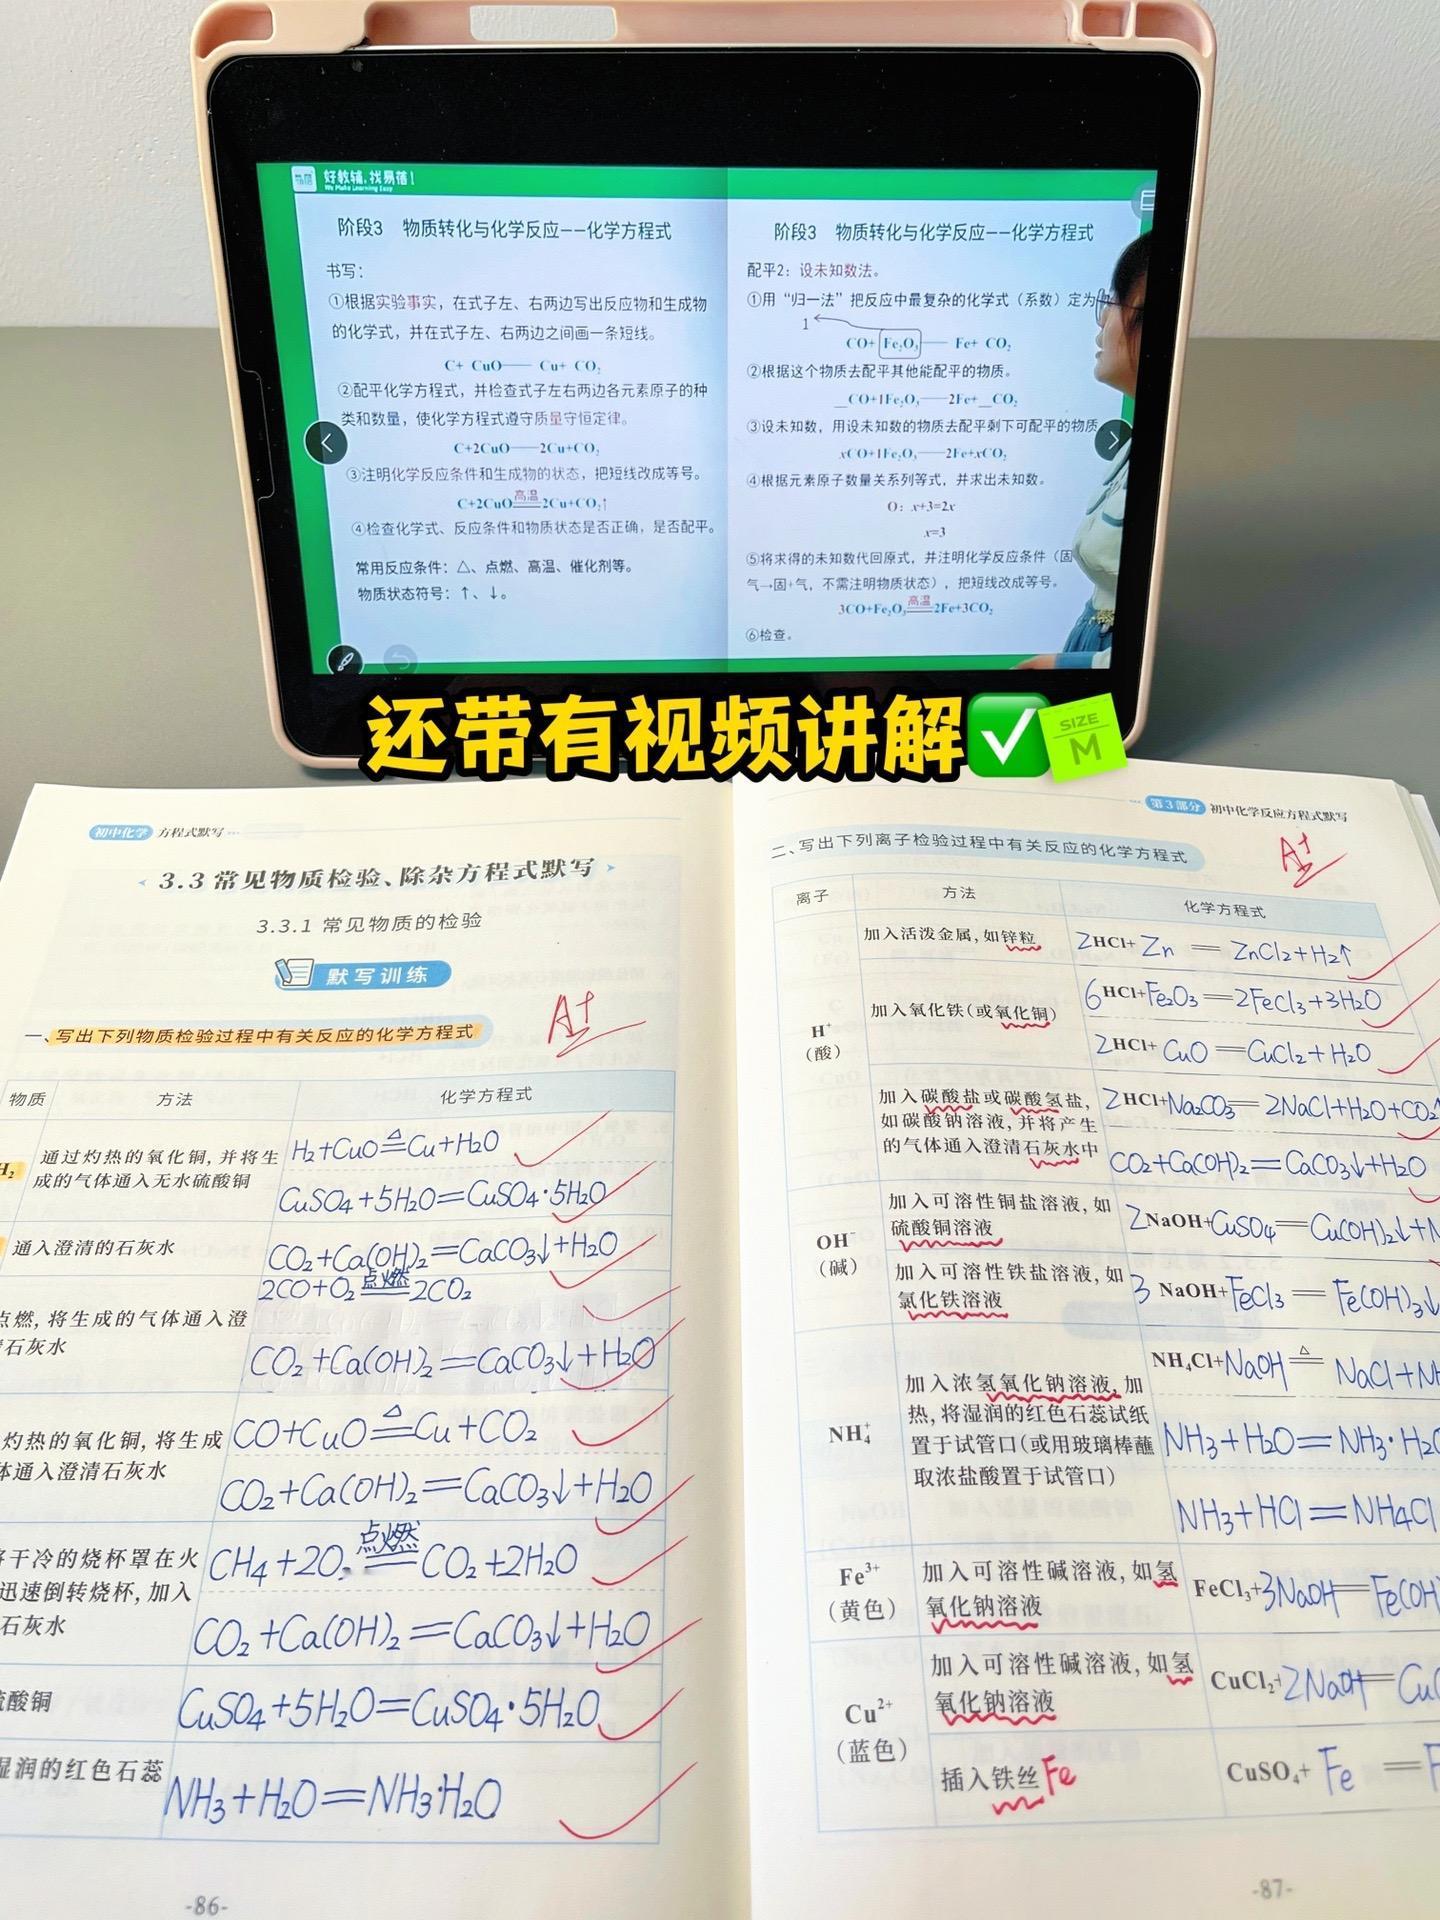 好教辅，找易蓓！
We Make Learning Easy
阶段3 物质转化与化学反应——化学方程式
书写：
①根据实验事实，在式子左、右两边写出反应物和生成物
的化学式，并在式子左、右两边之间画一条短线。
C+ CuO—— Cu+ CO₂
②配平化学方程式，并检查式子左右两边各元素原子的种
类和数量，使化学方程式遵守质量守恒定律。
C+2CuO——2Cu+CO₂
③注明化学反应条件和生成物的状态，把短线改成等号。
高温
C+2CuO══2Cu+CO₂↑
④检查化学式、反应条件和物质状态是否正确，是否配平。
常用反应条件：△、点燃、高温、催化剂等。
物质状态符号：↑、↓。
阶段3 物质转化与化学反应——化学方程式
配平2：设未知数法。
①用“归一法”把反应中最复杂的化学式（系数）定为
1
CO+ Fe₂O₃—— Fe+ CO₂
②根据这个物质去配平其他能配平的物质。
__CO+1Fe₂O₃——2Fe+__CO₂
③设未知数，用设未知数的物质去配平剩下可配平的物质
xCO+1Fe₂O₃——2Fe+xCO₂
④根据元素原子数量关系列等式，并求出未知数。
O：x+3=2x
x=3
⑤将求得的未知数代回原式，并注明化学反应条件（固
气→固+气，不需注明物质状态），把短线改成等号。
高温
3CO+Fe₂O₃══2Fe+3CO₂
⑥检查。
还带有视频讲解✅
SIZE
M
初中化学 方程式默写
3.3 常见物质检验、除杂方程式默写
3.3.1 常见物质的检验
默写训练
A+
一、写出下列物质检验过程中有关反应的化学方程式
物质 方法 化学方程式
H₂
通过灼热的氧化铜，并将生
成的气体通入无水硫酸铜
H₂+CuO≜Cu+H₂O
CuSO₄+5H₂O=CuSO₄·5H₂O
通入澄清的石灰水
CO₂+Ca(OH)₂=CaCO₃↓+H₂O
点燃，将生成的气体通入澄
石灰水
点燃
2CO+O₂══2CO₂
CO₂+Ca(OH)₂=CaCO₃↓+H₂O
灼热的氧化铜，将生成
体通入澄清石灰水
CO+CuO≜Cu+CO₂
CO₂+Ca(OH)₂=CaCO₃↓+H₂O
将干冷的烧杯罩在火
迅速倒转烧杯，加入
石灰水
点燃
CH₄+2O₂══CO₂+2H₂O
CO₂+Ca(OH)₂=CaCO₃↓+H₂O
硫酸铜
CuSO₄+5H₂O=CuSO₄·5H₂O
湿润的红色石蕊
NH₃+H₂O=NH₃·H₂O
-86-
第3部分 初中化学反应方程式默写
A+
二、写出下列离子检验过程中有关反应的化学方程式
离子 方法 化学方程式
H⁺
（酸）
加入活泼金属，如锌粒
2HCl+Zn=ZnCl₂+H₂↑
加入氧化铁（或氧化铜）
6HCl+Fe₂O₃=2FeCl₃+3H₂O
2HCl+CuO=CuCl₂+H₂O
加入碳酸盐或碳酸氢盐，
如碳酸钠溶液，并将产生
的气体通入澄清石灰水中
2HCl+Na₂CO₃=2NaCl+H₂O+CO₂↑
CO₂+Ca(OH)₂=CaCO₃↓+H₂O
OH⁻
（碱）
加入可溶性铜盐溶液，如
硫酸铜溶液
2NaOH+CuSO₄=Cu(OH)₂↓+N
加入可溶性铁盐溶液，如
氯化铁溶液
3NaOH+FeCl₃=Fe(OH)₃↓
NH₄⁺
加入浓氢氧化钠溶液，加
热，将湿润的红色石蕊试纸
置于试管口（或用玻璃棒蘸
取浓盐酸置于试管口）
NH₄Cl+NaOH≜NaCl+NH
NH₃+H₂O=NH₃·H₂O
NH₃+HCl=NH₄Cl
Fe³⁺
（黄色）
加入可溶性碱溶液，如氢
氧化钠溶液
FeCl₃+3NaOH=Fe(OH)
Cu²⁺
（蓝色）
加入可溶性碱溶液，如氢
氧化钠溶液
CuCl₂+2NaOH=Cu(
插入铁丝Fe
CuSO₄+Fe=F
-87-